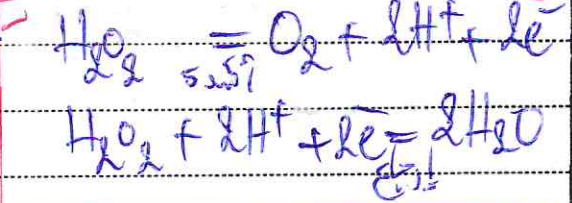 H₂O₂ = O₂ + 2H⁺ + 2e⁻
أكسدة
H₂O₂ + 2H⁺ + 2e⁻ = 2H₂O
إرجاع